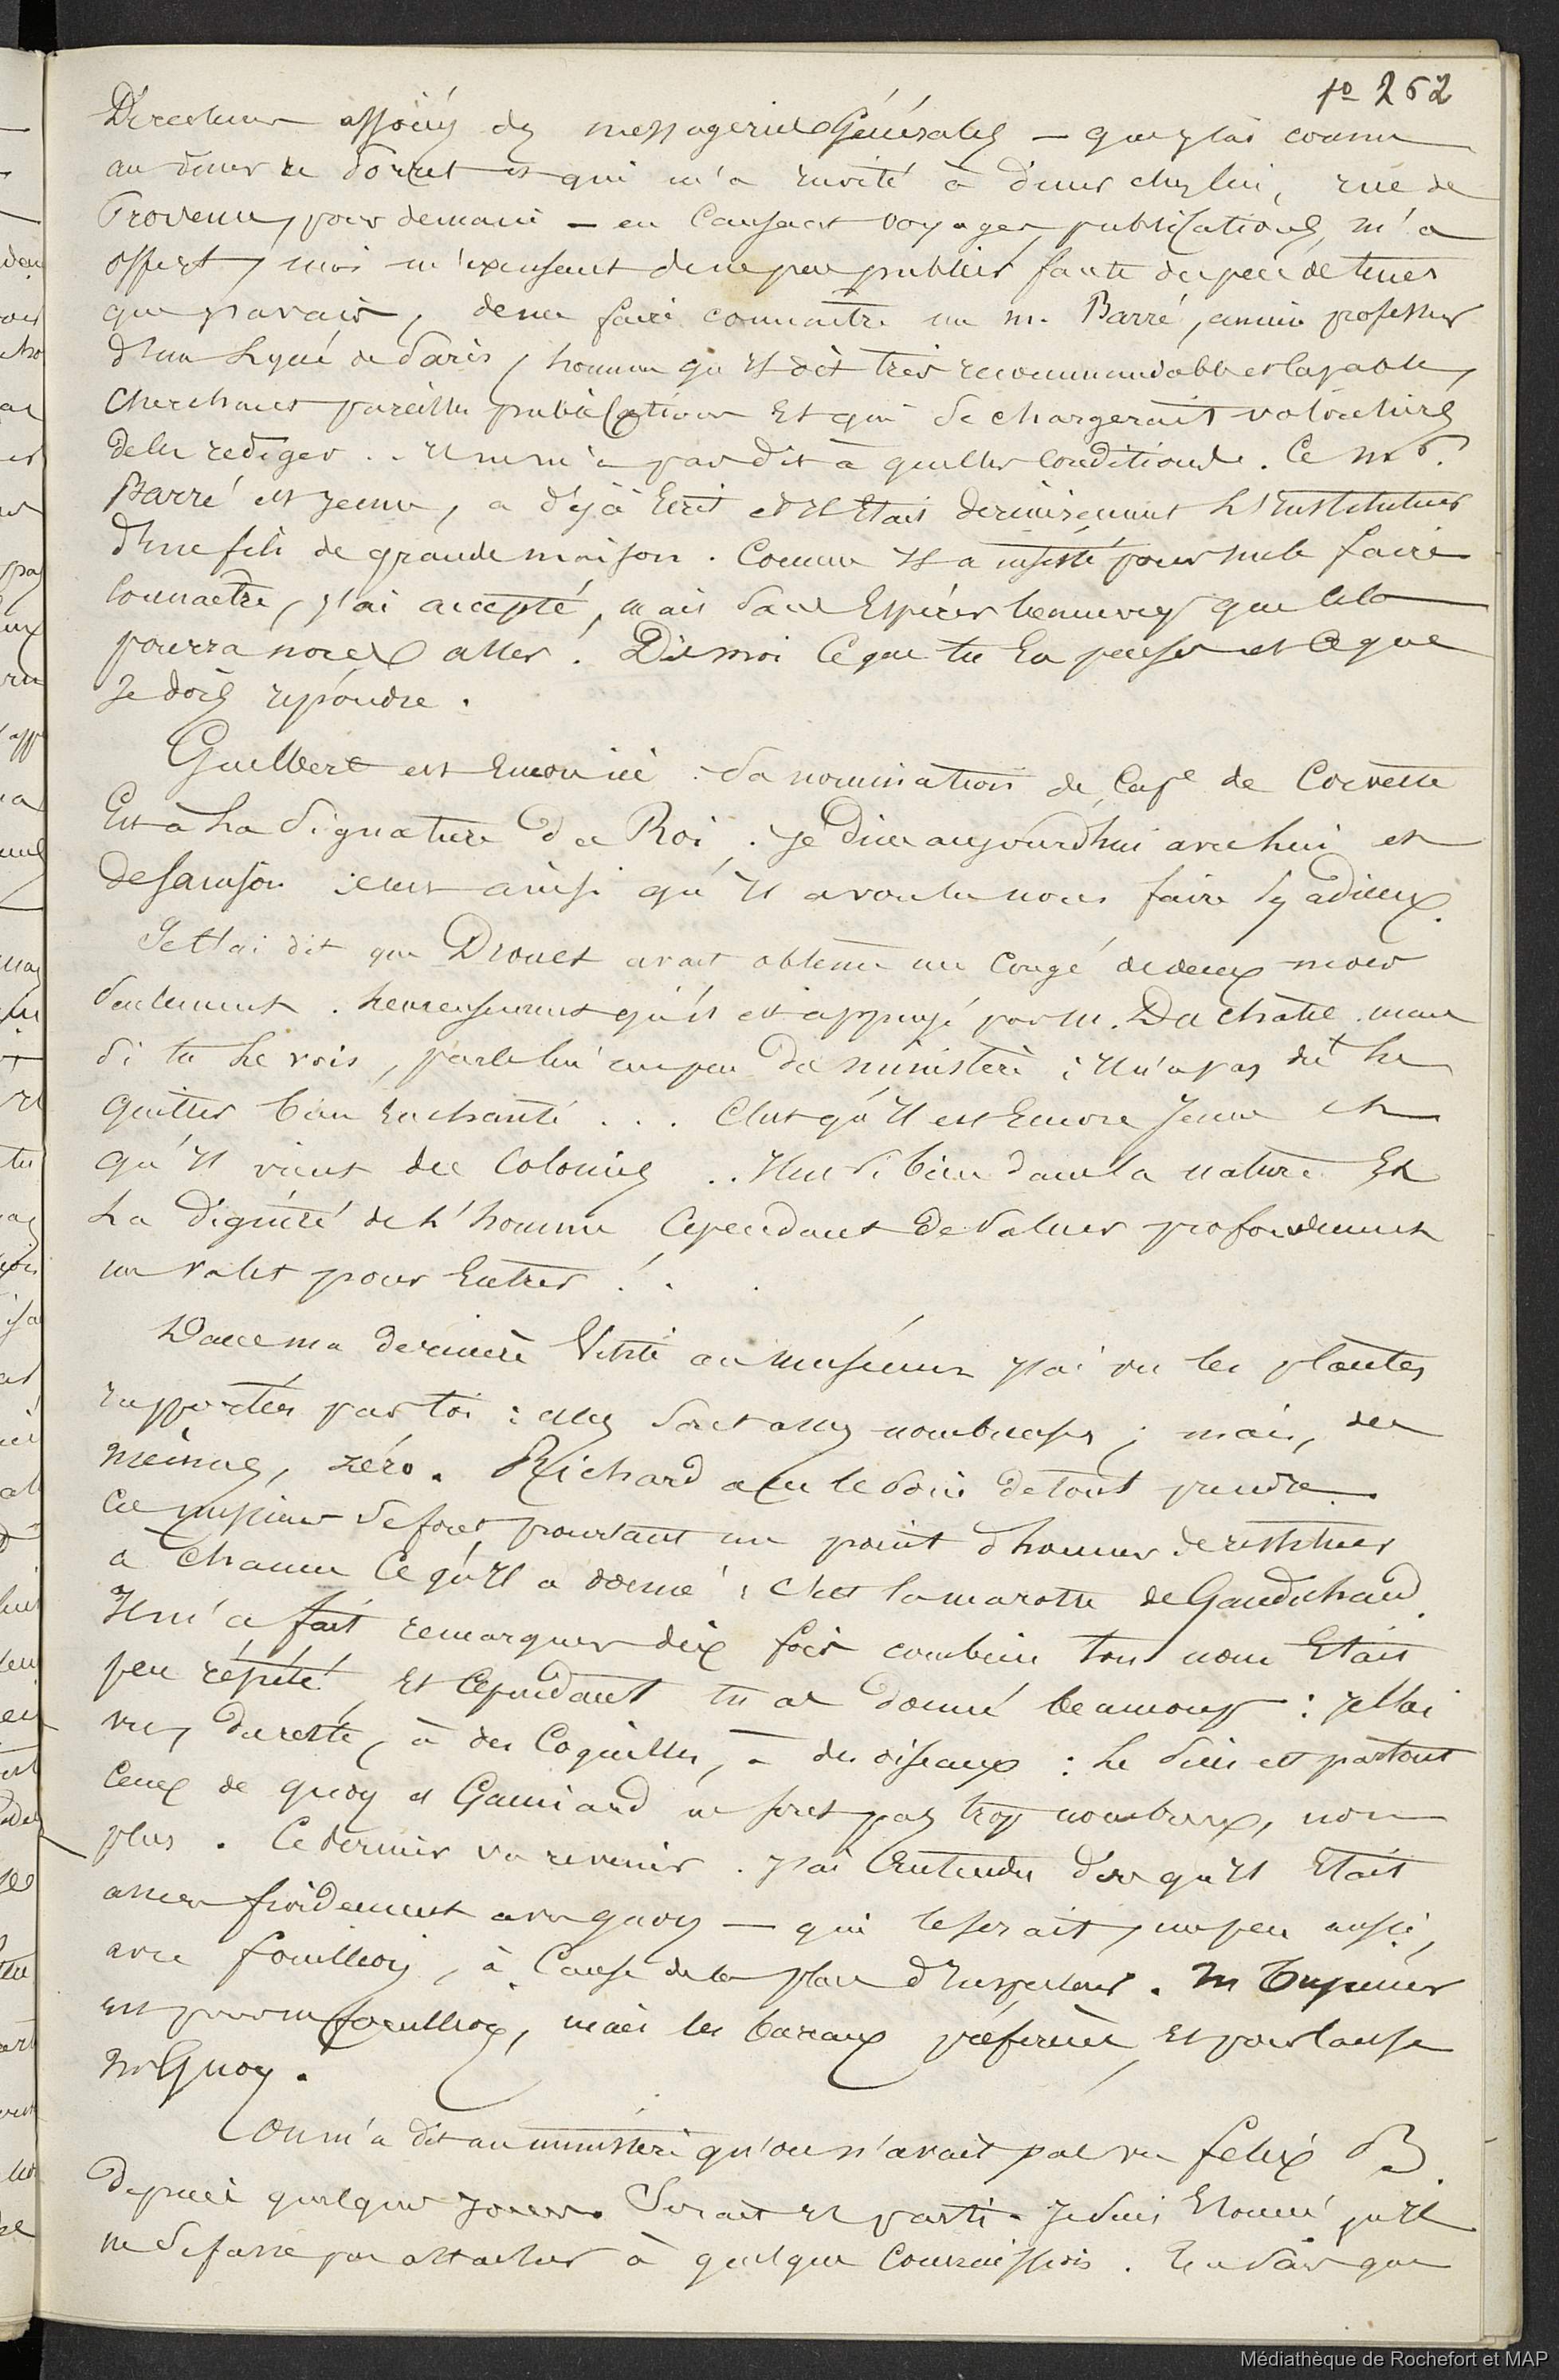 fo 262
Directeurs associés des messageries Générales — que j'ai connu
au diner de Dorret et qui m'a invité à diner chez lui, rue de
Provence, pour demain — en causant voyages, publications, m'a
offert, moi m'excusant de ne pas publier faute du peu de tems
que j'avais, de me faire connaitre un m. Barré, ancien professeur
d'un Lycée de Paris, homme qu'il dit très recommandable et capable,
cherchant pareilles publications et qui se chargerait volontiers
de les rediger .. Il ne m'a pas dit à quelles conditions. Ce mr.
Barré est jeune, a déjà écrit et il était dernièrement l'instituteur
d'une fils de grande maison. Comme il a insisté pour me le faire
connaitre, j'ai accepté, mais sans espérer beaucoup que cela
pourra nous aller. Dis moi ce que tu en penses et ce que
je dois répondre.
Guilbert est encore ici : sa nomination de Cape de Corvette
est à la signature du Roi. je dine aujourd'hui avec lui et
c'est ainsi qu'il a voulu nous faire ses adieux.
Je t'ai dit que Drouet avait obtenu un congé de deux mois
seulement. heureusement qu'il est appuyé par m. Duchatel. mais
si tu le vois, parle lui un peu du ministère ; il n'a pas dû le
quitter bien enchanté ... C'est qu'il est encore jeune et
qu'il vient des colonies .. Il est si bien dans la nature et
la dignité de l'homme cependant de saluer profondement
un valet pour entrer ! . .
Dans ma dernière visite au museum j'ai vu les plantes
rapportées par toi : elles sont assez nombreuses ; mais, des
miennes, zéro. Richard a eu le soin de tout prendre.
Ces messieurs se font pourtant un point d'honneur de restituer
à chacun ce qu'il a donné ; c'est la marotte de Gaudichaud.
Il m'a fait remarquer dix fois combien ton nom était
peu répété et cependant tu as donné beaucoup : je l'ai
vu, du reste, à des coquilles, à des oiseaux : le sien est partout
ceux de Quoy et Gaimard ne sont pas trop nombreux, non
plus. Ce dernier va revenir. J'ai entendu dire qu'il était
assez froidement avec Quoy — qui le serait, un peu aussi,
avec fouilloy, à cause de la place d'Inspecteur. M Tupinier
est pour m fouilloy, mais les bureaux préfèrent, et pour cause
mr Quoy.
On m'a dit au ministère qu'on n'avait pas vu felix B.
depuis quelques jours. Serait il parti. Je suis étonné qu'il
ne se fasse pas attacher à quelque commission. Tu sais que